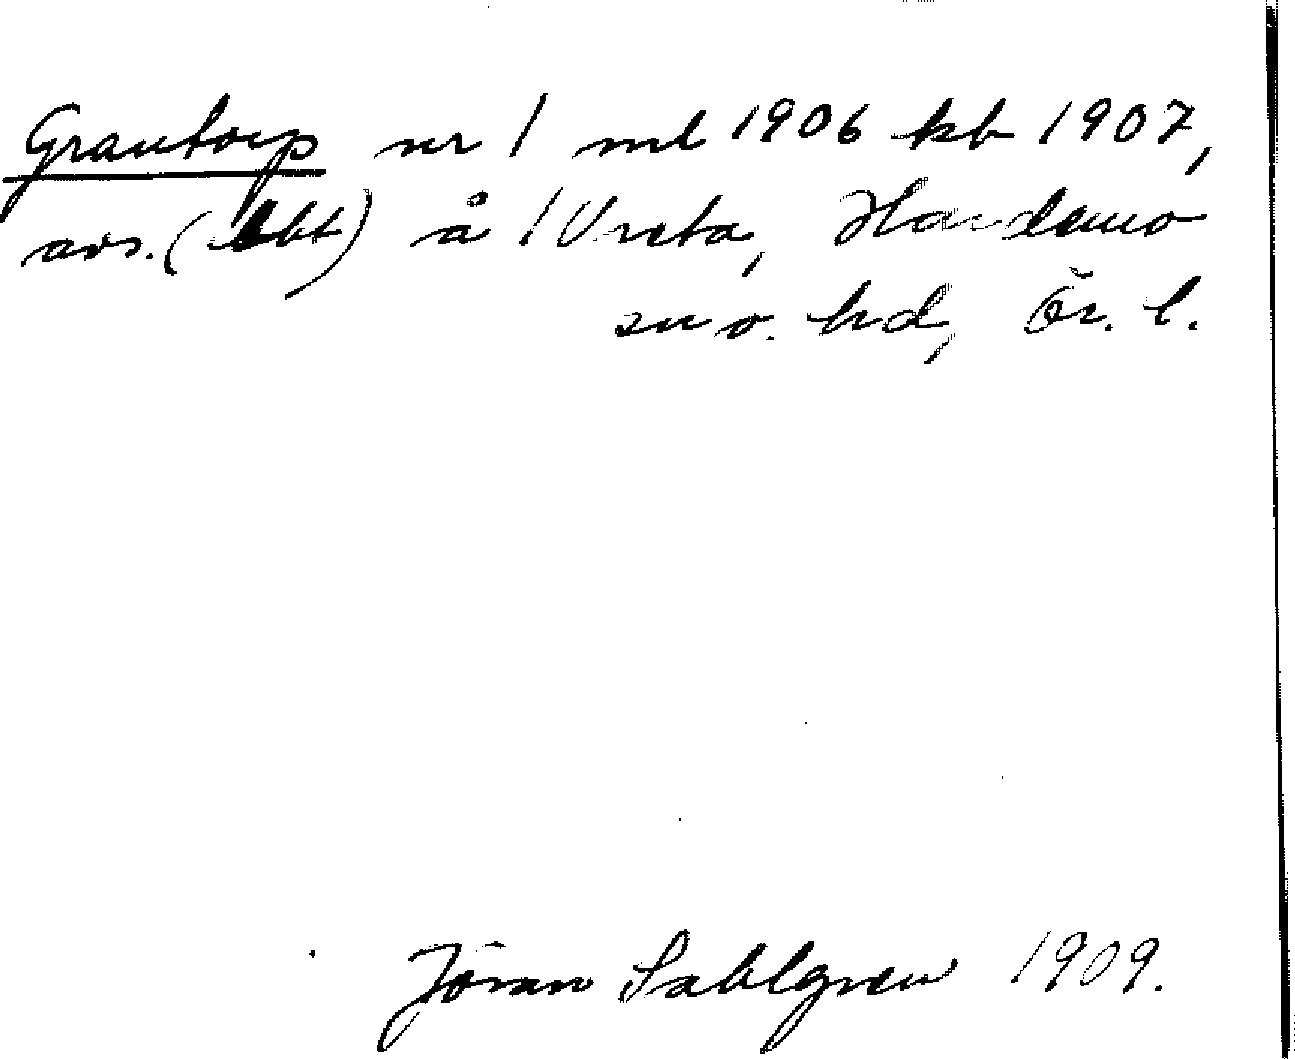 Grantorp nr 1 ml 1906 kb 1907,
avs. (lbt) å 1 Vreta, Hardemo
sn o. hd, Ör. l.
Jöran Sahlgren 1909.